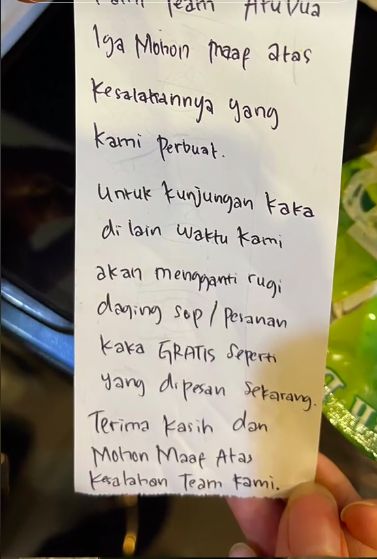 Team
Iga Mohon maaf atas
Kesalahannya yang
kami perbuat.
Untuk kunjungan kaka
di lain waktu kami
akan mengganti rugi
daging sop / Pesanan
kaka GRATIS seperti
yang dipesan sekarang.
Terima kasih dan
Mohon Maaf Atas
Kesalahan Team kami.